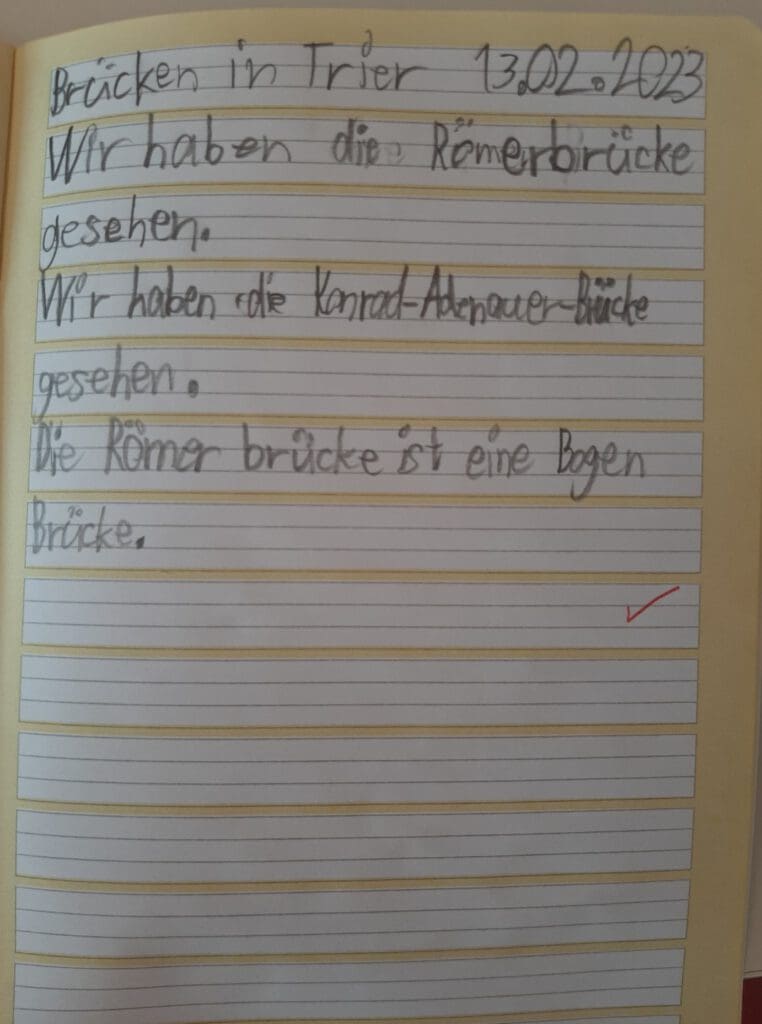 Brücken in Trier 13.02.2023
Wir haben die Römerbrücke
gesehen.
Wir haben die Konrad-Adenauer-Brücke
gesehen.
Die Römer brücke ist eine Bogen
Brücke.